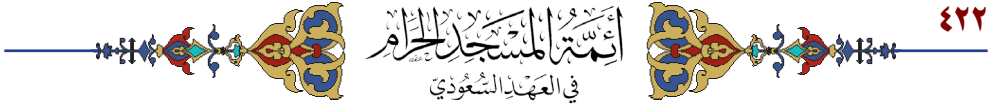 ٤٢٢
أَئِمَّةُ المَسْجِدِ الحَرَامِ
فِي العَهْدِ السُّعُودِيّ